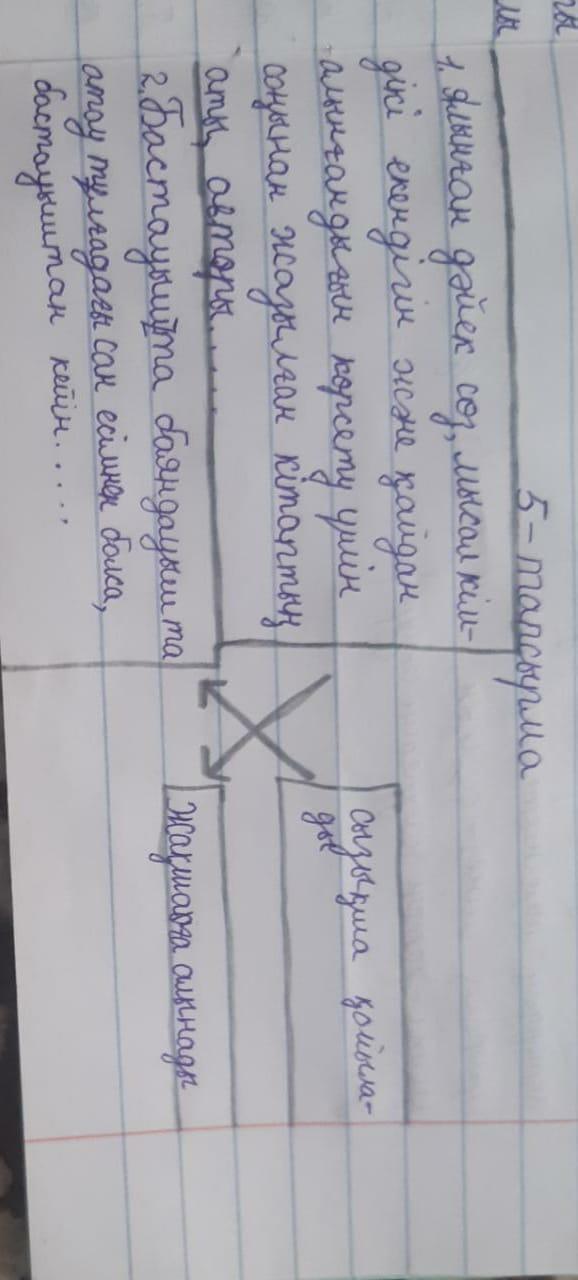 5-тапсырма
1. Алынған дәйек сөз, мысал кім-
дікі екендігін және қайдан
алынғандығын көрсету үшін
соңынан жазылған кітаптың
аты, авторы.....
2. Бастауышта баяндауышта
атау тұлғадағы сан есімнен болса,
бастауыштан кейін.....
сызықша қойыла-
ды
жақшаға алынады